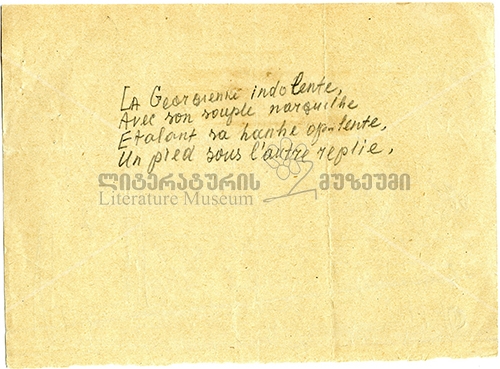 La Georgienne indolente,
Avec son souple narquilhe
Etalant sa hanhe opulente,
Un pied sous l'autre replie,
ლიტერატურის მუზეუმი
Literature Museum